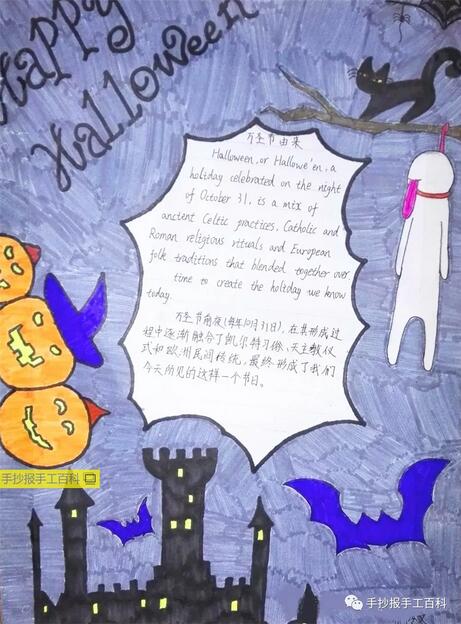 Happy
Halloween
万圣节由来
Halloween, or Hallowe'en, a
holiday celebrated on the night
of October 31, is a mix of
ancient Celtic practices, Catholic and
Roman religious rituals and European
folk traditions that blended together over
time to create the holiday we know
today.
万圣节前夜(每年10月31日), 在其形成过
程中逐渐融合了凯尔特习俗、天主教仪
式和欧洲民间传统, 最终形成了我们
今天所见的这样一个节日。
手抄报手工百科
手抄报手工百科